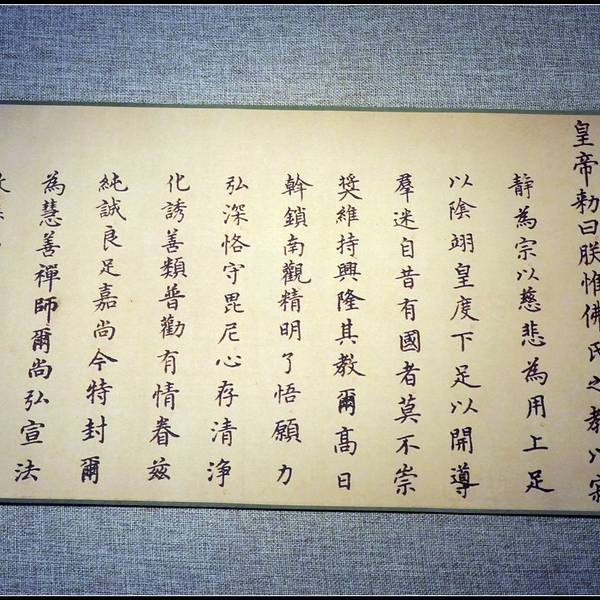 皇帝勑曰朕惟佛氏之教以寂
静為宗以慈悲為用上足
以陰翊皇度下足以開導
羣迷自昔有國者莫不崇
奬維持興隆其教爾高日
斡鎖南觀精明了悟願力
弘深恪守毘尼心存清淨
化誘善類普勸有情眷兹
純誠良足嘉尚今特封爾
為慧善禪師爾尚弘宣法